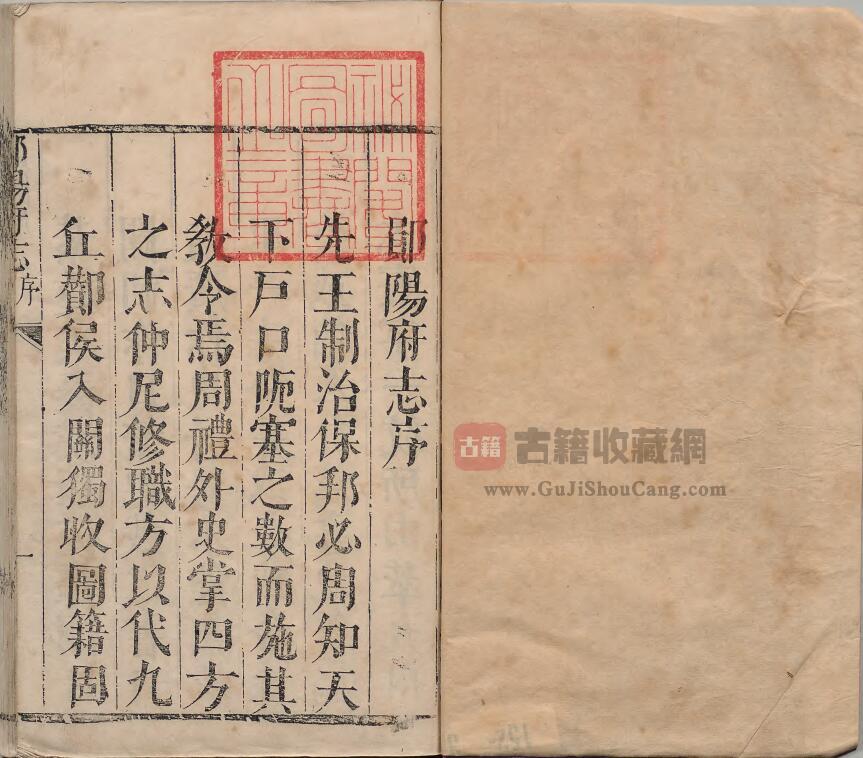 秘閣
圖書
之章
鄖陽府志序
先王制治保邦必周知天
下戸口阨塞之數而施其
敎令焉周禮外史掌四方
之志仲尼修職方以代九
丘酇侯入關獨收圖籍固
鄖陽府志序
一
古籍
古籍收藏網
www.GuJiShouCang.com